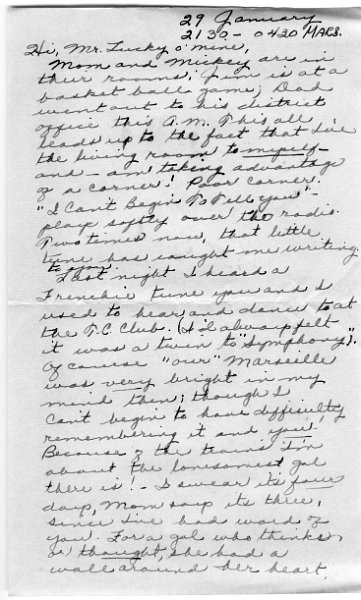 29 January
2130 - 0420 MARS.
Hi, Mr. Lucky o' mine,
Mom and Mickey are in
their rooms; Jean is at a
basket ball game; Dad
went out to his district
office this A.M. This all
leads up to the fact that I've
the living room to myself -
and - am taking advantage
of a corner! Poor corner!
"I Can't Begin To Tell you" -
plays softly over the radio.
Two times now, that little
tune has caught me writing
to you.
Last night I heard a
Frenchie tune you and I
used to hear and dance to at
the T.C. Club. (I always felt
it was a twin to "Symphony").
Of course "our" Marseille
was very bright in my
mind then; though I
can't begin to have difficulty
remembering it and you!
Because of the trains I'm
about the lonesomest gal
there is! - I swear it's four
days, Mom says it's three,
since I've had word of
you. For a gal who thinks,
or thought, she had a
wall around her heart,